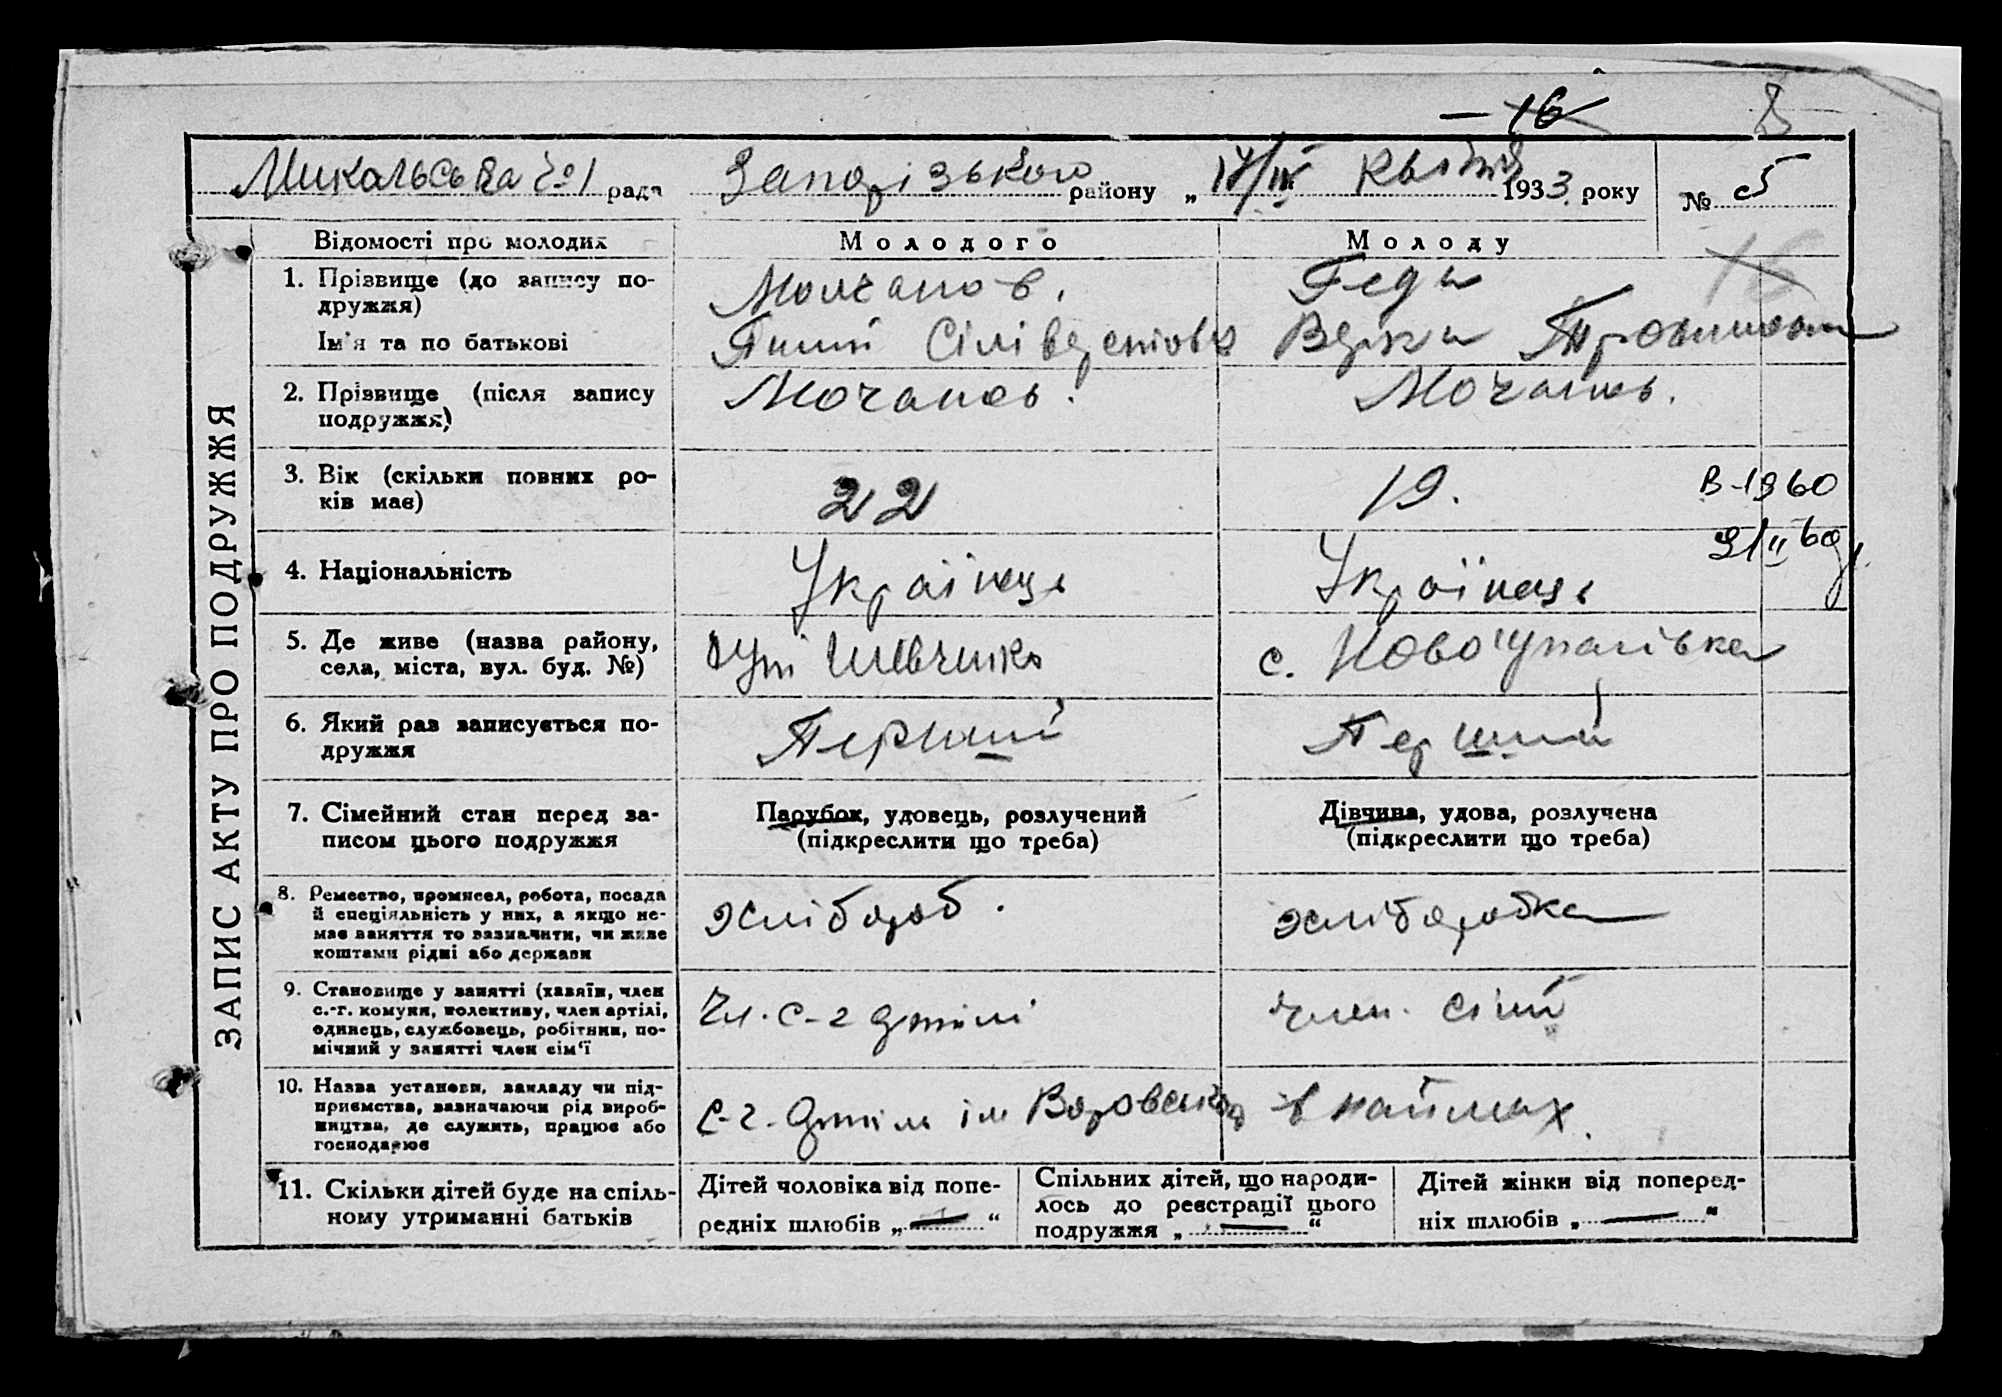 16
Микольська №1 рада Запорізького району „ 17/IV Квітня 1933 року № 5
ЗАПИС АКТУ ПРО ПОДРУЖЖЯ
Відомості про молодих
Молодого
Молоду
16
1. Прізвище (до запису по-
дружжя)
Молчанов.
Геды
Ім'я та по батькові
Сілівертовк
2. Прізвище (після запису
подружжя)
Мочанов.
Мочанов.
3. Вік (скільки повних ро-
ків має)
22
19.
В-1960
4. Національність
Українець
Українець
5. Де живе (назва району,
села, міста, вул. буд. №)
Шевченко
с. Новогупалівка
6. Який раз записується по-
дружжя
Перший
Перший
7. Сімейний стан перед за-
писом цього подружжя
Парубок, удовець, розлучений
(підкреслити що треба)
Дівчина, удова, розлучена
(підкреслити що треба)
8. Ремество, промисел, робота, посада
й спеціяльність у них, а якщо не-
має заняття то зазначити, чи живе
коштами рідні або держави
хлібороб.
хліборобка
9. Становище у занятті (хазяїн, член
с.-г. комуни, колективу, член артілі,
одинець, службовець, робітник, по-
мічний у занятті член сім'ї
Чл. с-г артілі
член. сімї
10. Назва установи, закладу чи під-
приємства, зазначаючи рід вироб-
ництва, де служить, працює або
господарює
С-г. артіль ім Воровського
в наймах.
11. Скільки дітей буде на спіль-
ному утриманні батьків
Дітей чоловіка від попе-
редніх шлюбів „ — “
Спільних дітей, що народи-
лось до реєстрації цього
подружжя „ — “
Дітей жінки від поперед-
ніх шлюбів „ — “